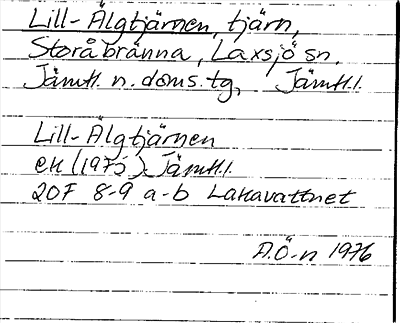 Lill-Älgtjärnen, tjärn,
Storåbränna, Laxsjö sn.
Jämtl. n. doms. tg, Jämtl.l.
Lill-Älgtjärnen
ek (1975) Jämtl.l.
20F 8-9 a-b Lakavattnet
A.Ö-n 1976